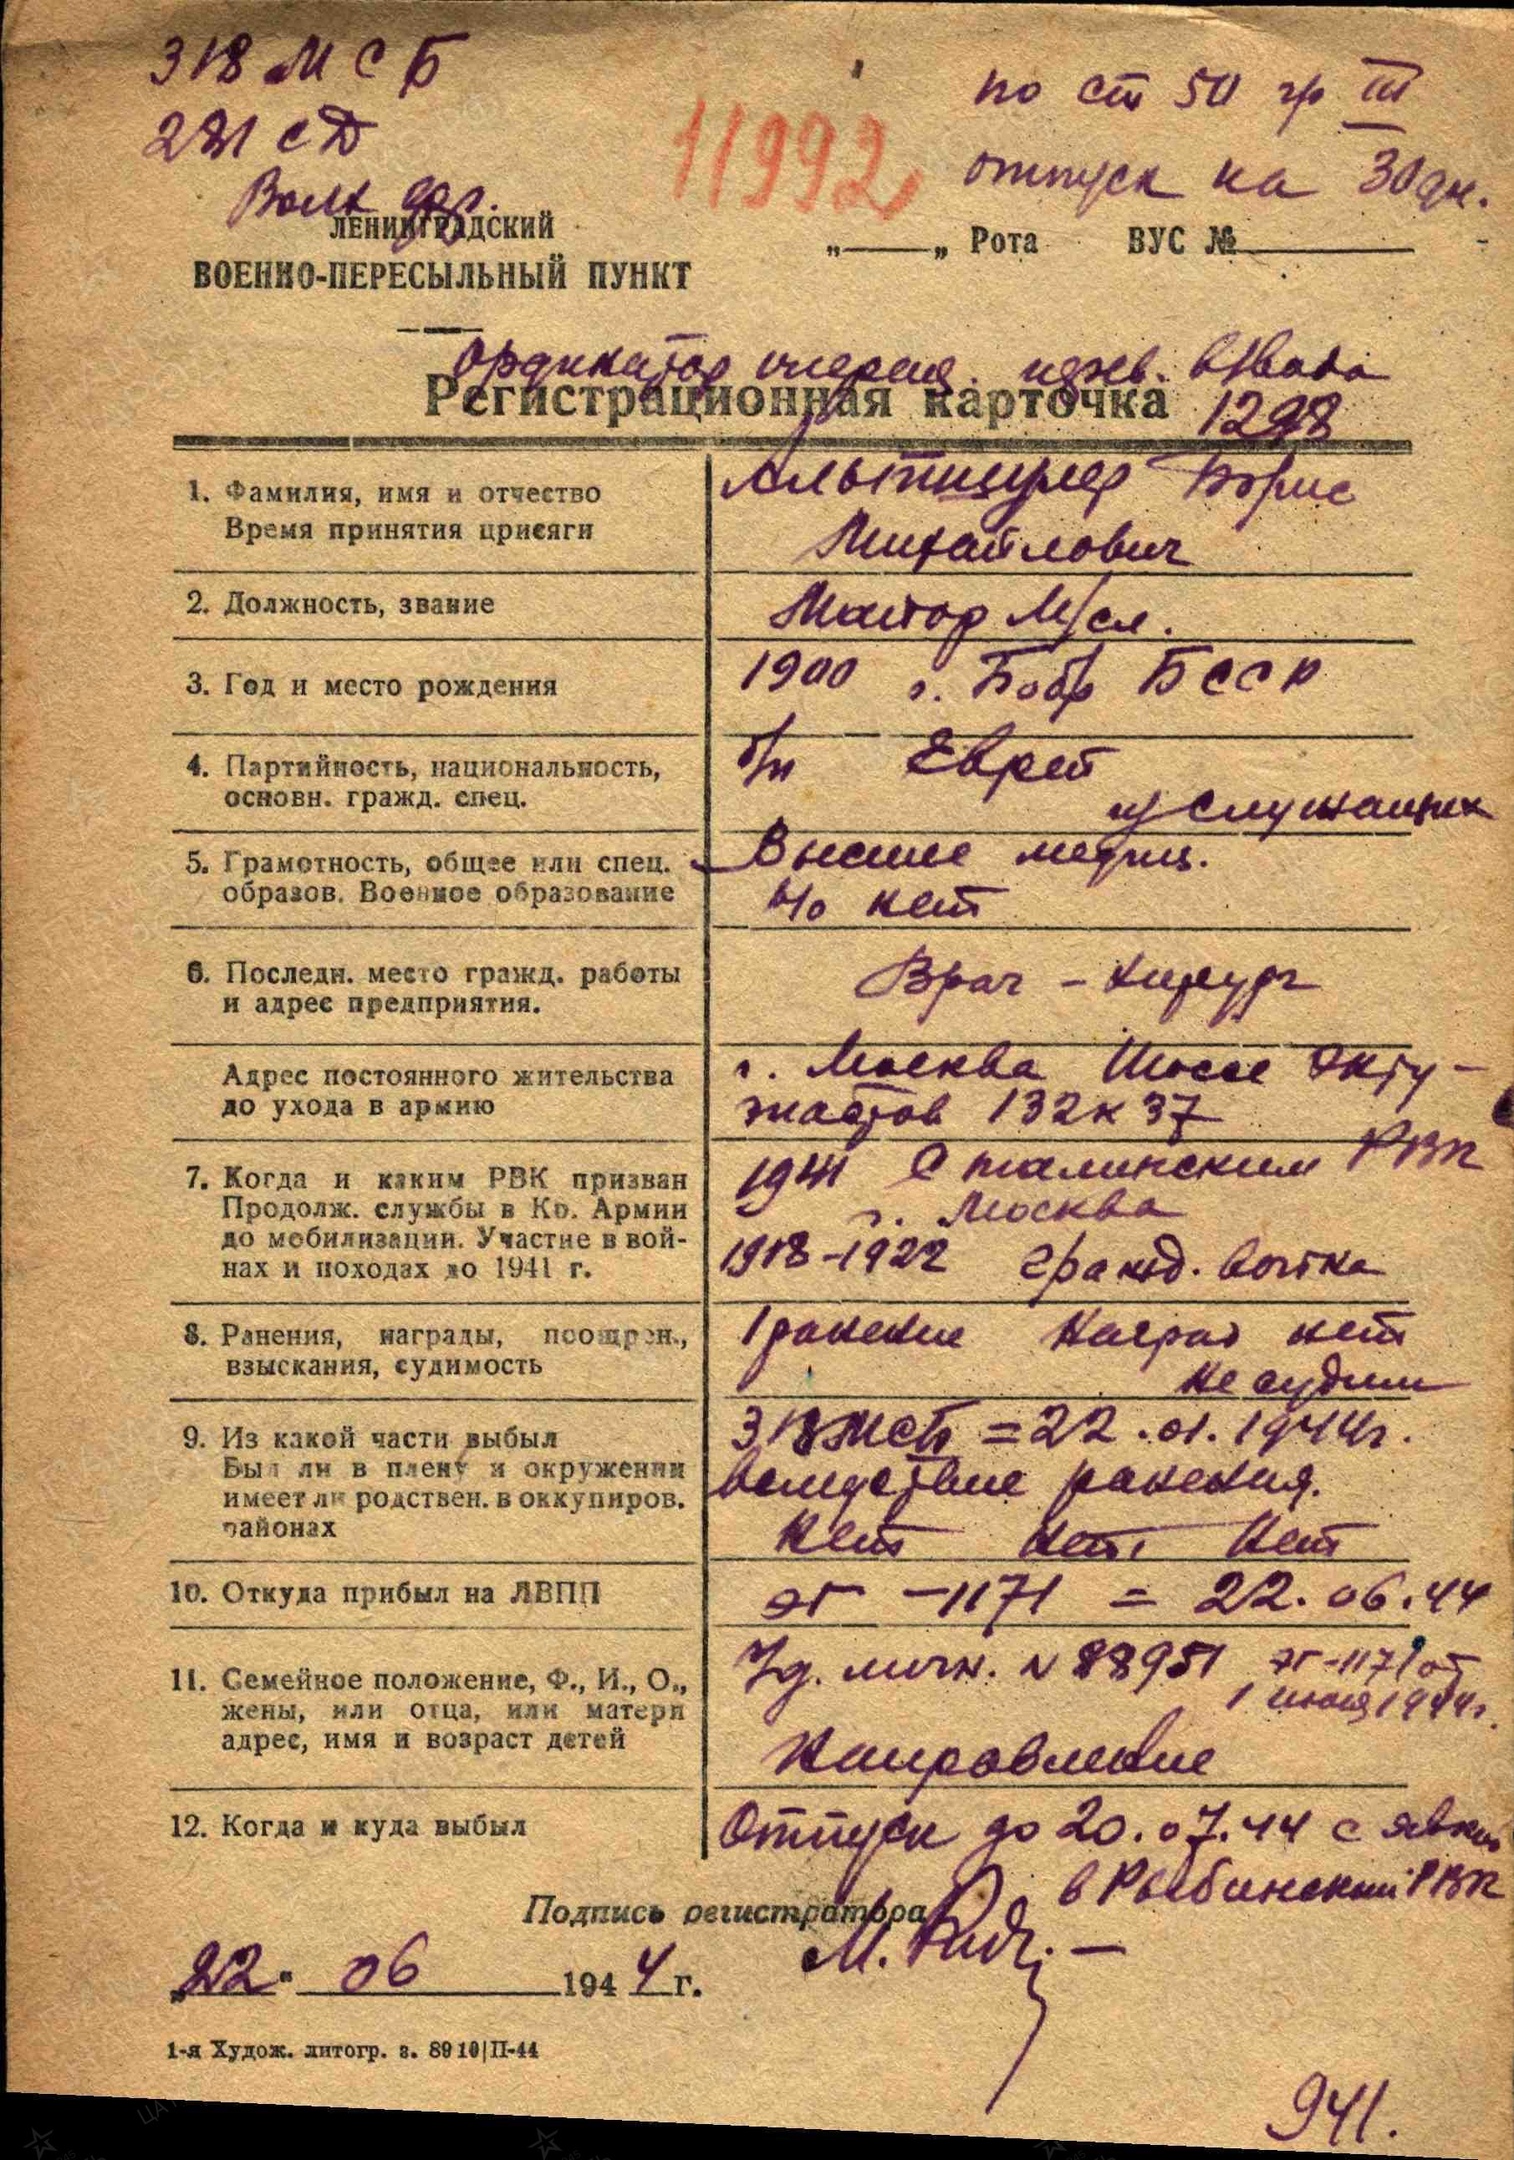 318 МСБ
281 СД
Волх фр.
11992
по ст 50 гр III
отпуск на 30 дн.
ЛЕНИНГРАДСКИЙ
ВОЕННО-ПЕРЕСЫЛЬНЫЙ ПУНКТ
„——„ Рота ВУС №
Ординатор операц. перев. взвода
Регистрационная карточка 1298
1. Фамилия, имя и отчество
Время принятия присяги
Альтшулер Борис
Михайлович
2. Должность, звание
Майор М/сл.
3. Год и место рождения
1900 г. Бобр БССР
4. Партийность, национальность,
основн. гражд. спец.
б/п Еврей
из служащих
5. Грамотность, общее или спец.
образов. Военное образование
Высшее медиц.
в/о нет
6. Последн. место гражд. работы
и адрес предприятия.
Врач - хирург
Адрес постоянного жительства
до ухода в армию
г. Москва Шоссе Энту-
зиастов 132 к 37
7. Когда и каким РВК призван
Продолж. службы в Кр. Армии
до мобилизации. Участие в вой-
нах и походах до 1941 г.
1941 Сталинским РВК
г. Москва
1918-1922 гражд. война
8. Ранения, награды, поощрен.,
взыскания, судимость
1 ранение Наград нет
не судим
9. Из какой части выбыл
Был ли в плену и окружении
имеет ли родствен. в оккупиров.
районах
318 МСБ = 22.01.1944г.
вследствие ранения.
Нет Нет Нет
10. Откуда прибыл на ЛВПП
ЭГ -1171 = 22.06.44
11. Семейное положение, Ф., И., О.,
жены, или отца, или матери
адрес, имя и возраст детей
Уд. личн. N 88951 ЭГ-1171 от
1 июня 1944г.
Направление
12. Когда и куда выбыл
Отпуск до 20.07.44 с явкой
в Рыбинский РВК
Подпись регистратора
22 " 06 1944 г.
1-я Худож. литогр. з. 8910|II-44
941.